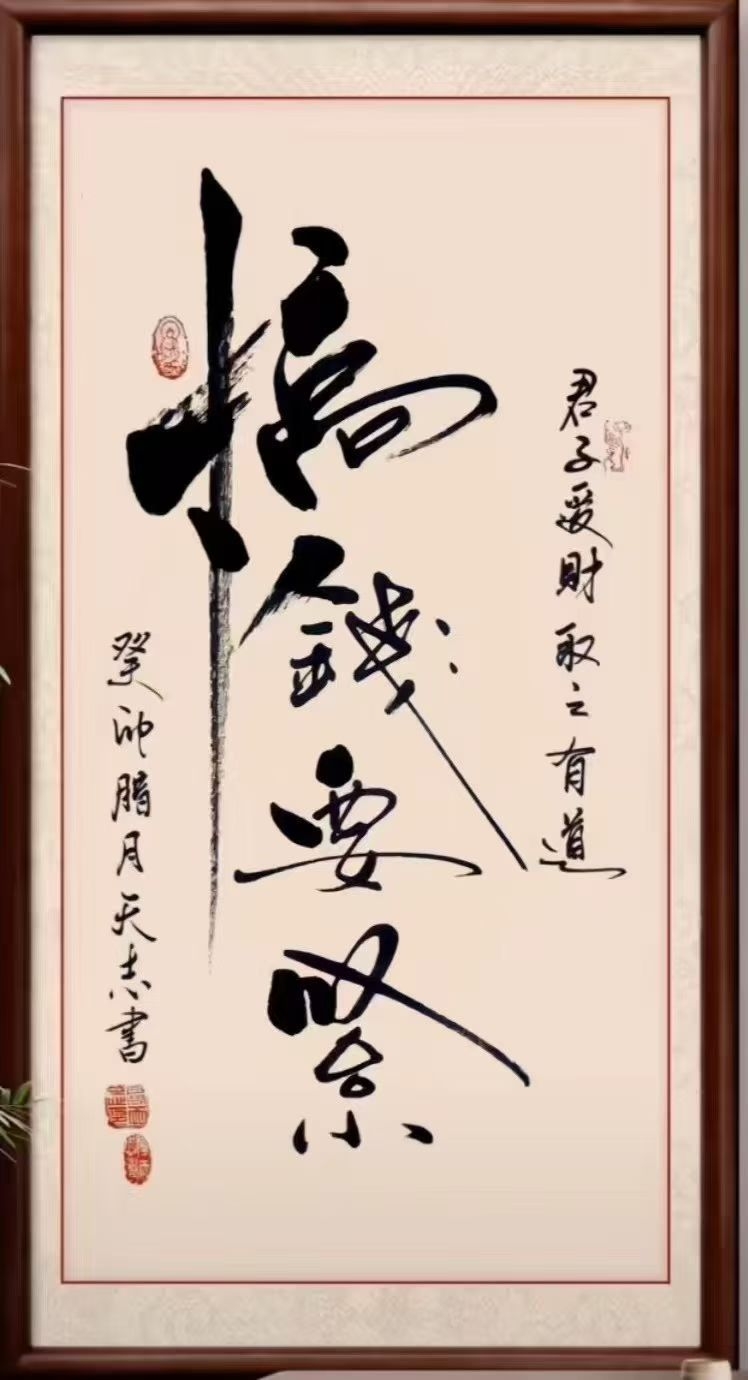 君子愛財取之有道
搞錢要緊
癸卯腊月天志書